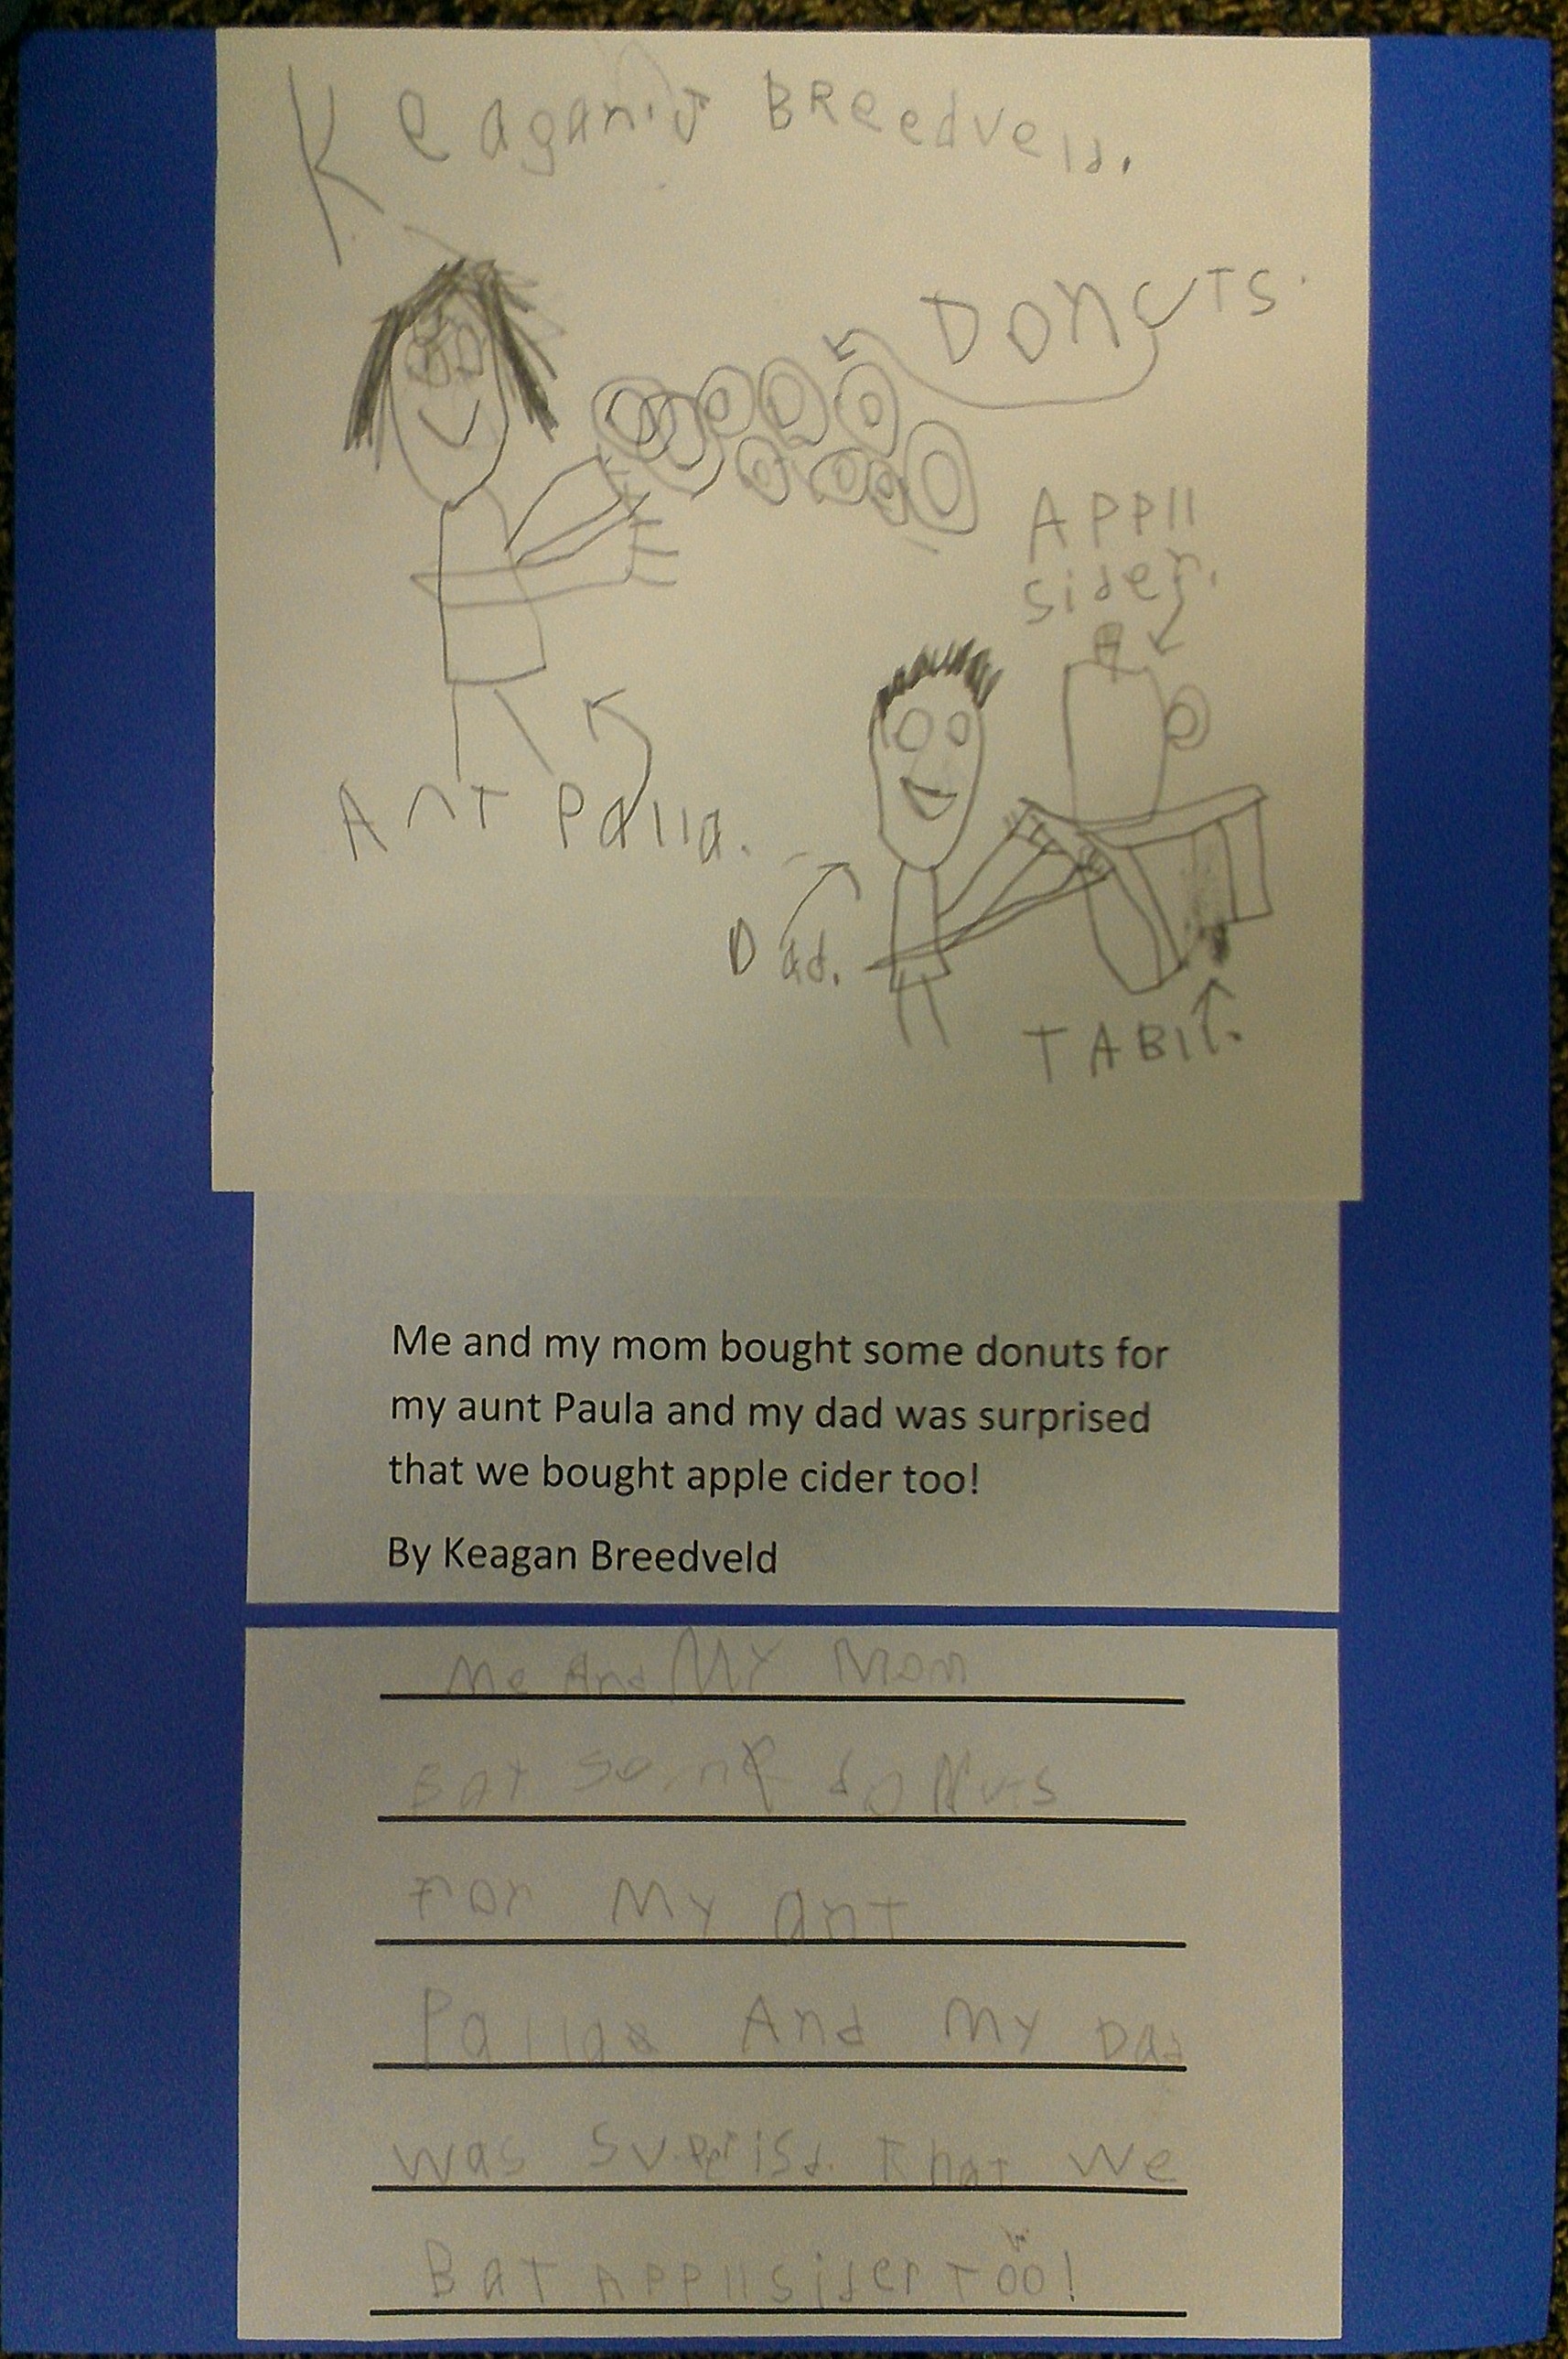 Keagan.J BReedveld.
DONUTS.
APPll
sider.
A
AnT Palla.
Dad.
TABll.
Me and my mom bought some donuts for
my aunt Paula and my dad was surprised
that we bought apple cider too!
By Keagan Breedveld
Me And MY Mom
BaT some doNuTs
For MY anT
Palla And MY Dad
was SuPrisd That We
BaT APPll sider Too!